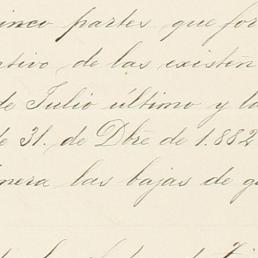 cinco partes que for
tivo de las existen
de Julio último y la
de 31. de Dbre de 1.882
nera las bajas de g